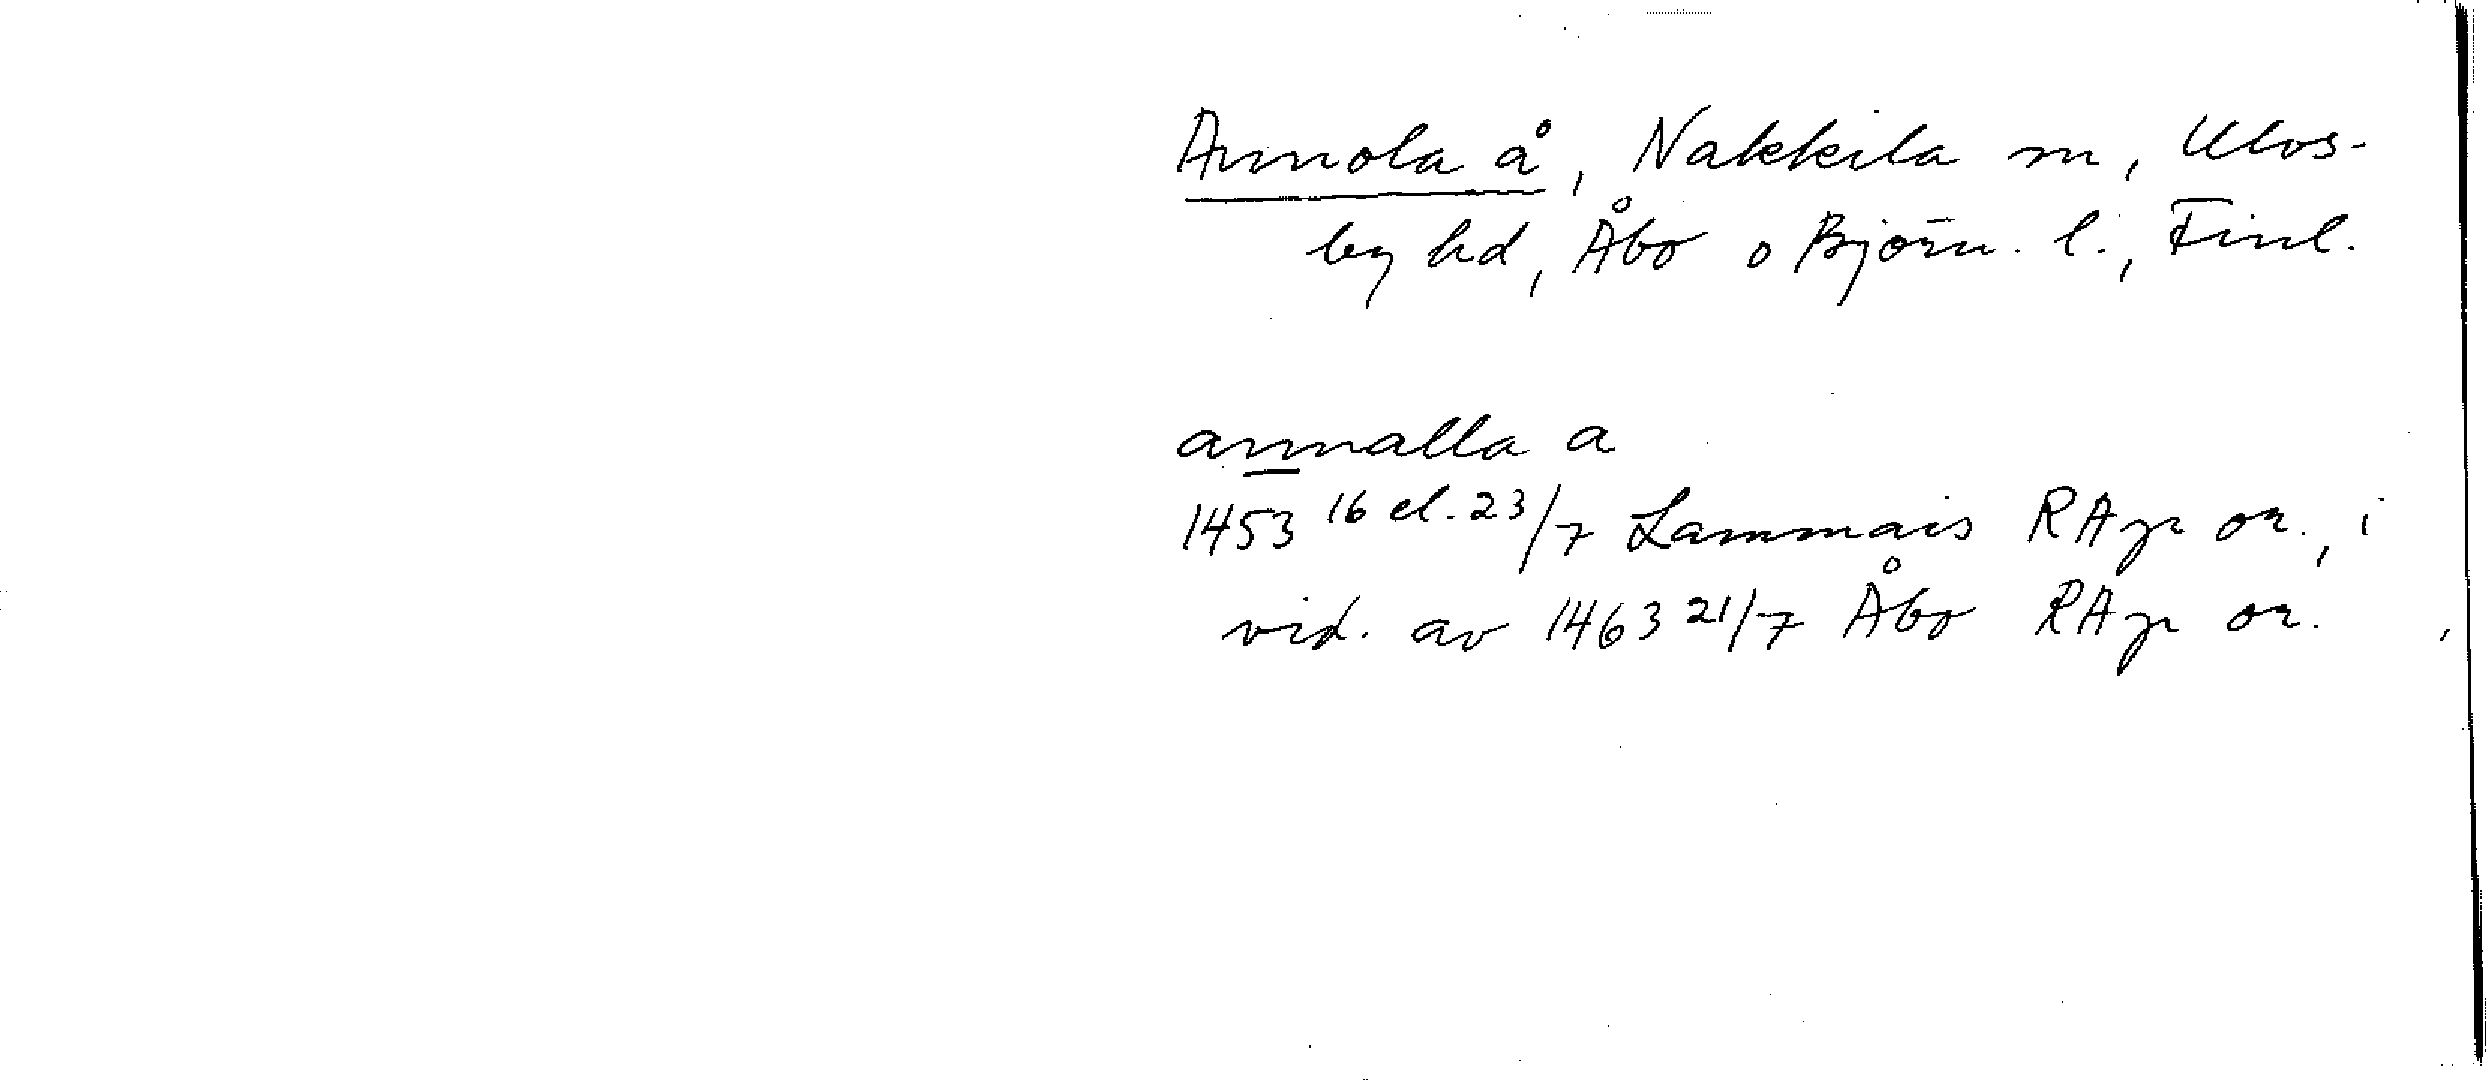 Annola å, Nakkila sn, Ulvs-
by hd, Åbo o Björn. l., Finl.
annalla a
1453 16 el. 23/7 Lammais RAp or., i
vid. av 1463 21/7 Åbo RAp or.